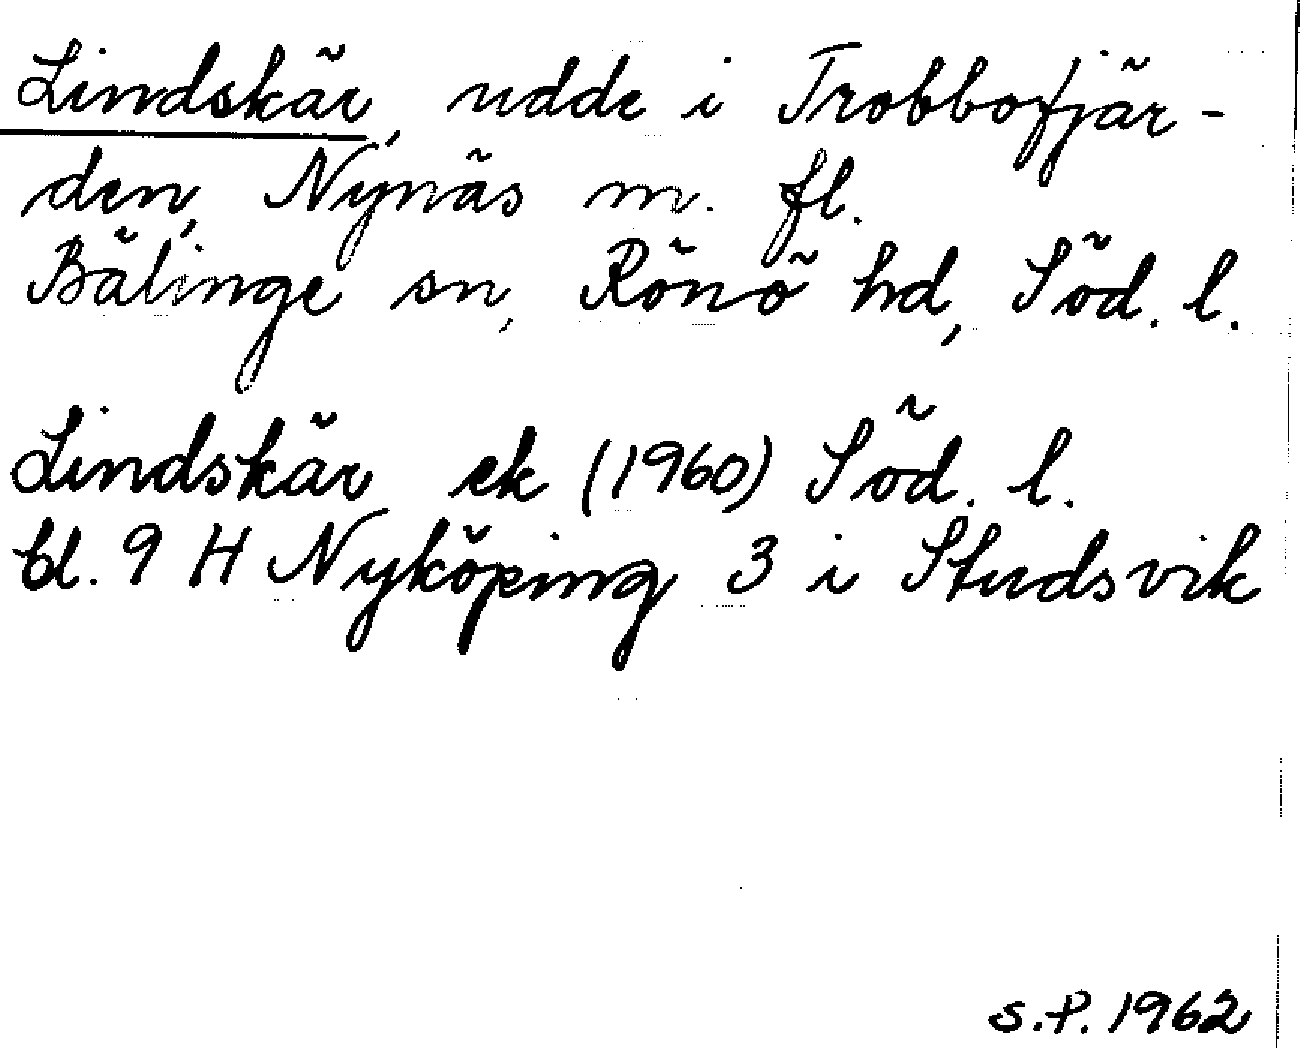 Lindskär, udde i Trobbofjär-
den, Nynäs m. fl.
Bälinge sn, Rönö hd, Söd. l.
Lindskär ek (1960) Söd. l.
bl. 9 H Nyköping 3 i Studsvik
S.P. 1962